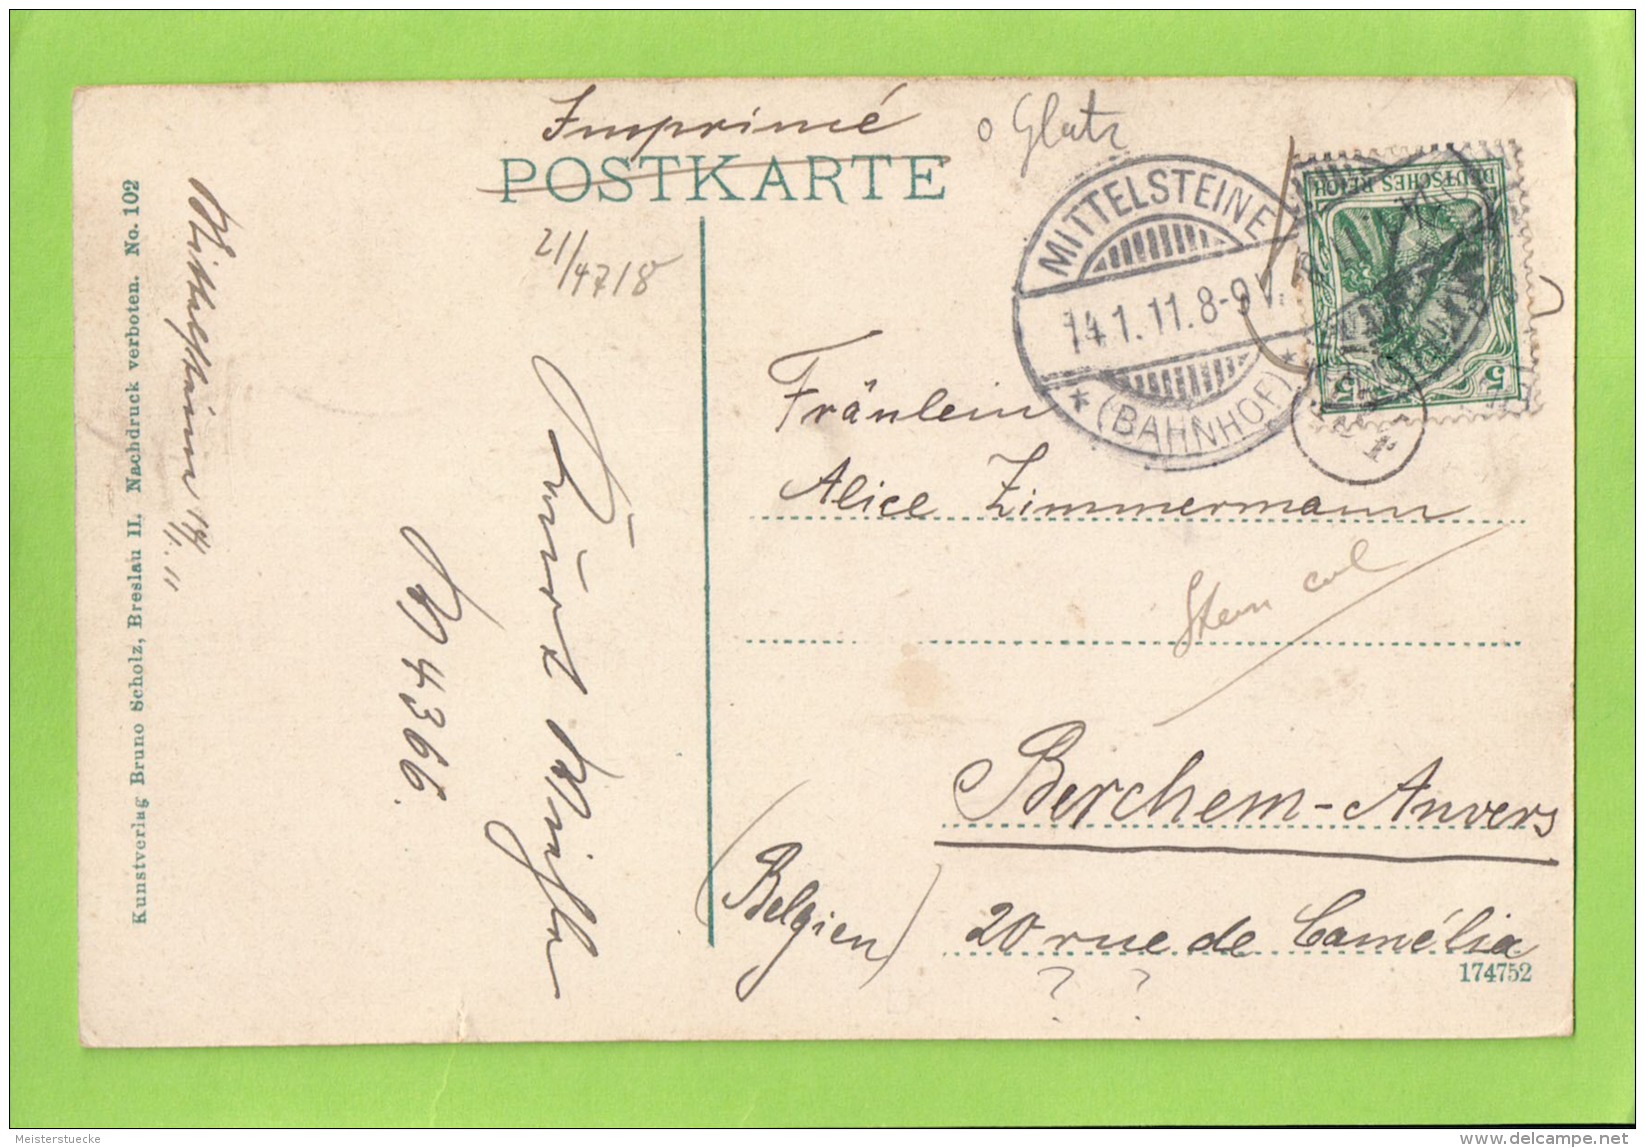 Imprimé
POSTKARTE
o Glatz
21/4718
MITTELSTEINE
14.1.11.8-9V.
* (BAHNHOF) *
DEUTSCHES REICH
5 5
Fräulein
Alice Zimmermann
Berchem-Anvers
(Belgien)
20 rue de Camélia
? ?
174752
14/1. 11
4366.
Kunstverlag Bruno Scholz, Breslau II. Nachdruck verboten. No. 102
Meisterstuecke
delcampe.net